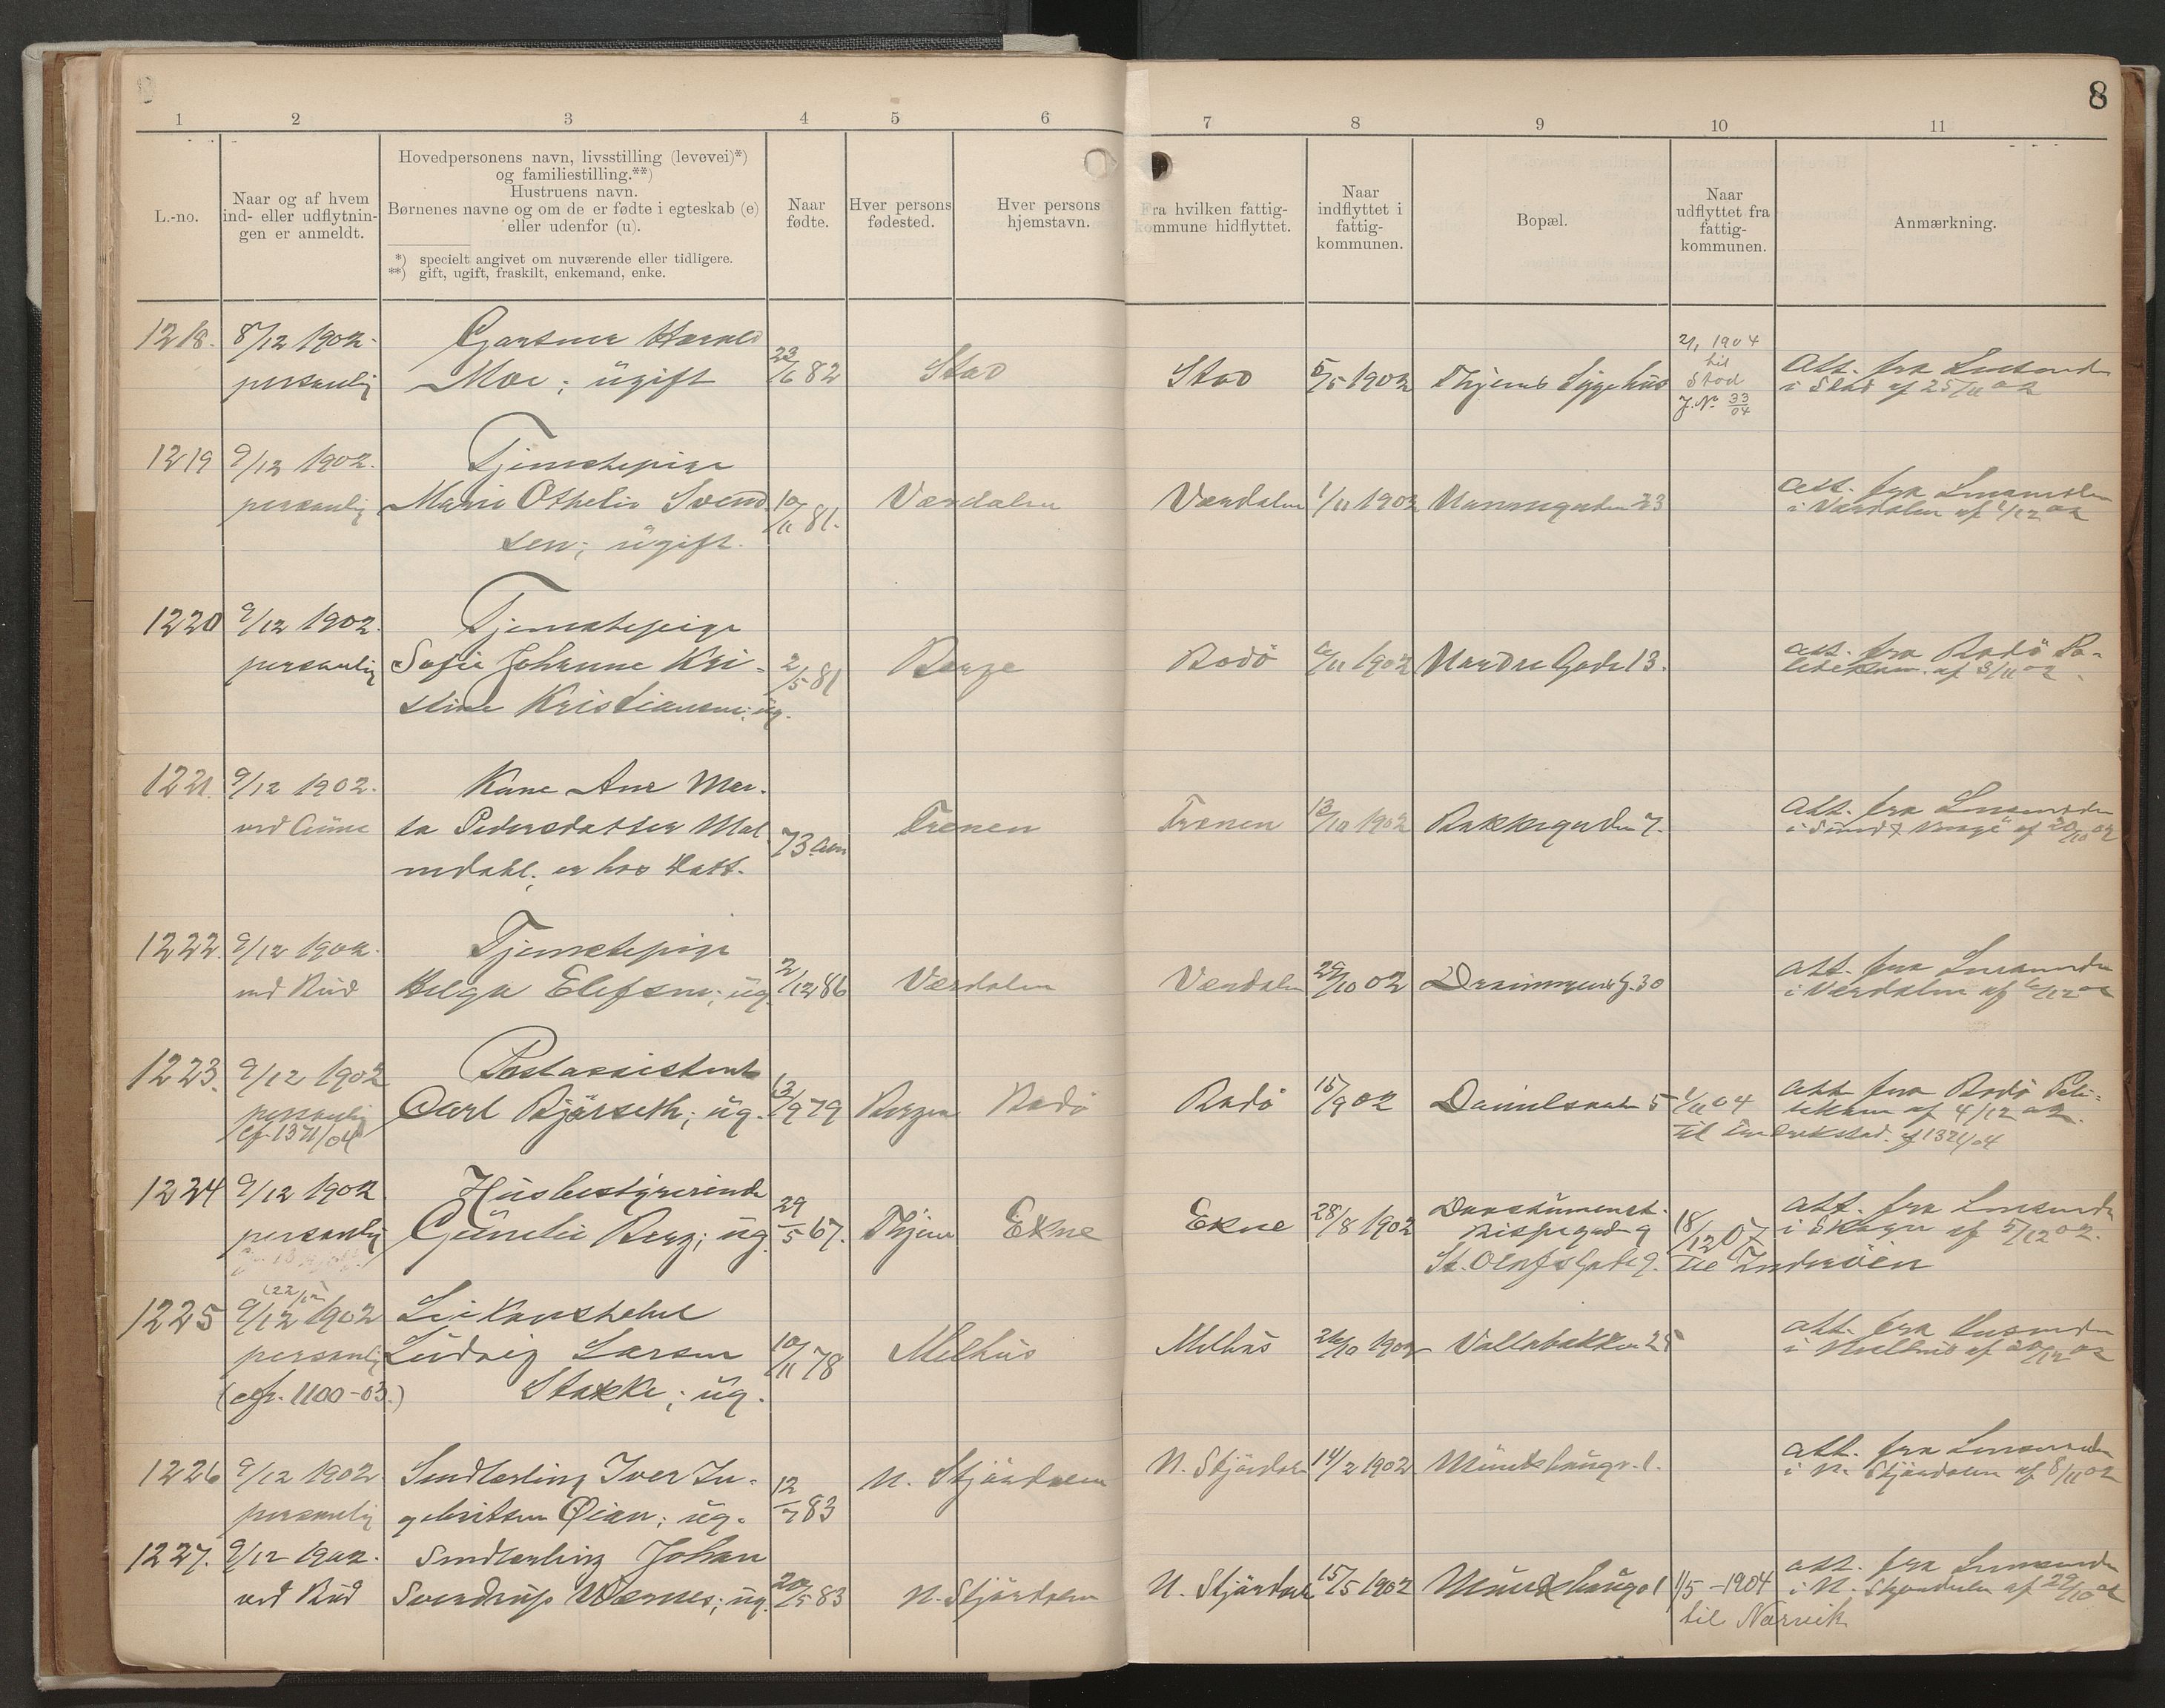 8
1 2 3 4 5 6 7 8 9 10 11
L.-no.
Naar og af hvem
ind- eller udflytnin-
gen er anmeldt.
Hovedpersonens navn, livsstilling (levevei)*)
og familiestilling.**)
Hustruens navn.
Børnenes navne og om de er fødte i egteskab (e)
eller udenfor (u).
*) specielt angivet om nuværende eller tidligere.
**) gift, ugift, fraskilt, enkemand, enke.
Naar
fødte.
Hver persons
fødested.
Hver persons
hjemstavn.
Fra hvilken fattig-
kommune hidflyttet.
Naar
indflyttet i
fattig-
kommunen.
Bopæl.
Naar
udflyttet fra
fattig-
kommunen.
Anmærkning.
1218. 8/12 1902. Gartner Harald 2/1 1904
personlig Moe; ugift 23/6 82 Stod Stod 5/5 1902 Thjems Sygehus til Stod J. No. 33/04 Att. fra Lensmden
i Stod af 25/11 02
1219 9/12 1902. Tjenestepige
personlig Marie Othelie Svend 10/11 81. Værdalen Værdalen 1/11 1902 Nunnegaden 23 Att. fra Lensmden
sen; ugift. i Værdalen af 1/12 02
1220 9/12 1902. Tjenestepige
personlig Sofie Johanne Kri- 2/5 81 Bodö 1902 Nordre Gade 13. att. fra Bodö Po-
stine Kristiansen; ug. litikam. af 3/11 02
1221. 9/12 1902. Kone Ane Mar.
ved ta Pedersdatter Mal 73 aar Frenen Frenen 13/10 1902 Bakkegaden 7. Att. fra Lensmden
mdahl; er hos Datt. af 20/10 02
1222. 9/12 1902. Tjenestepige
ved Rud Helga Elefsen; ug. 2/12 86 Værdalen Værdalen 29/10 02 30 att. fra Lensmden
i Værdalen af
1223. 9/12 1902 Postassistent
personlig Carl Bjørseth; ug. 13/9 79 Bergen Bodö Bodö 15/9 02 Danielsveien 5 1/11 04 att fra Bodö Poli-
cf. 1371/04 til Fredrikstad. cf 1371/04 tikam af 4/12 02.
1224 9/12 1902 Husbestyrerinde
personlig Gunelie Berg; ug. 29/5 67. Thjem Ekne Ekne 28/8 1902 Bispegad 9 18/12 07 att. fra Lensmden
St. Olafsgade 9. til Inderöen i Skogn af 5/12 02.
1225 9/12 1902
personlig Ludvig Larsen 10/11 78 Melhus Melhus 26/10 1902 Vollabakken 25 att. fra Lensmden
(cfr. 1100-03.) Stokke; ug. i Melhus af
1226 9/12 1902. Smdlærling Iver In-
personlig gebritsen Øian; ug. 12/7 83 N. Stjördalen N. Stjördalen 14/2 1902 Munkhaugv. 1. att. fra Lensmden
i N. Stjördalen af 8/11 02
1227. 9/12 1902. Smdlærling Johan
ved Rud Sverdrup Værnes; ug. 20/5 83 N. Stjördalen N. Stjördalen 15/5 1902 Munkhaugv 1 1/5 -1904 att. fra Lensmden
til Narvik i N. Stjördalen af 29/10 02